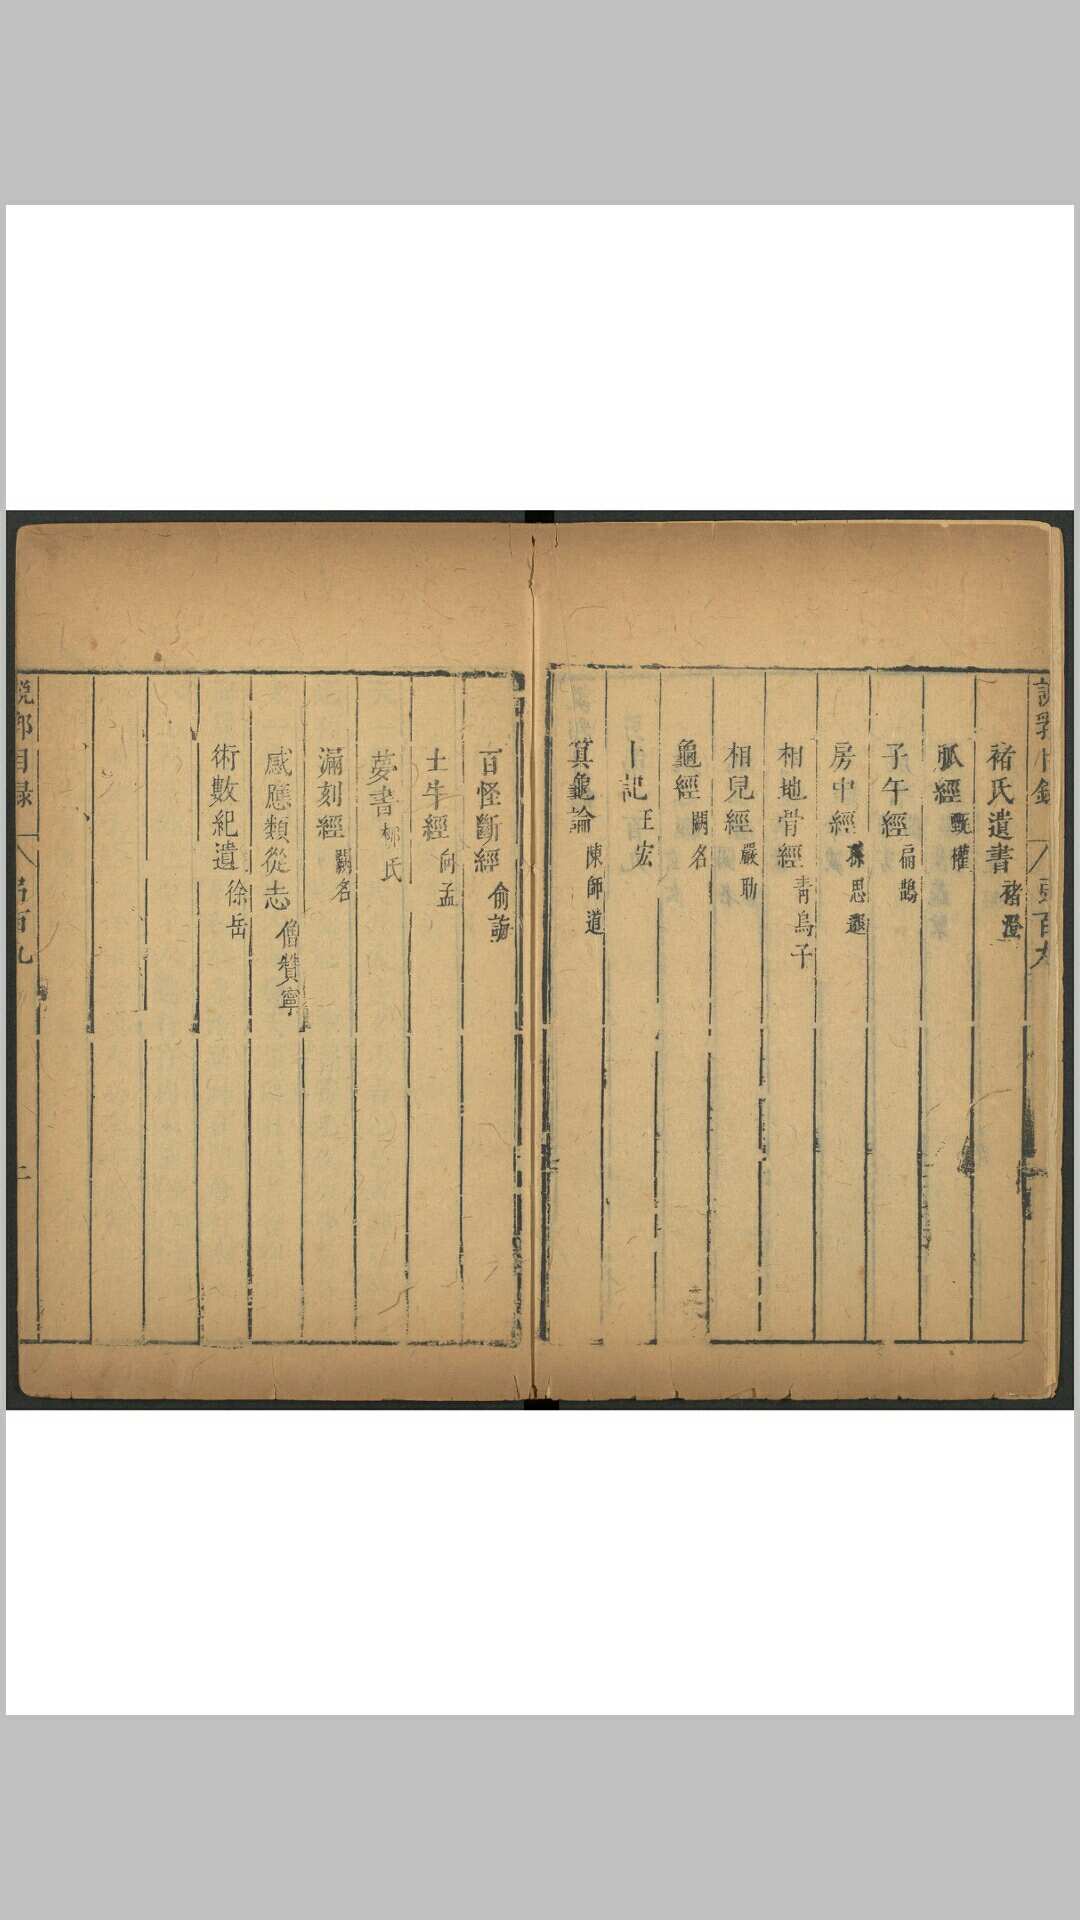 褚氏遺書 褚澄
脈經 甄權
子午經 扁鵲
房中經 孫思邈
相地骨經 青烏子
相兒經 嚴助
龜經 闕名
卜記 王宏
箕龜論 陳師道
百怪斷經 俞誨
土牛經 向孟
夢書 柳氏
漏刻經 闕名
感應類從志 僧贊寧
術數紀遺 徐岳
說郛目錄 弓百九